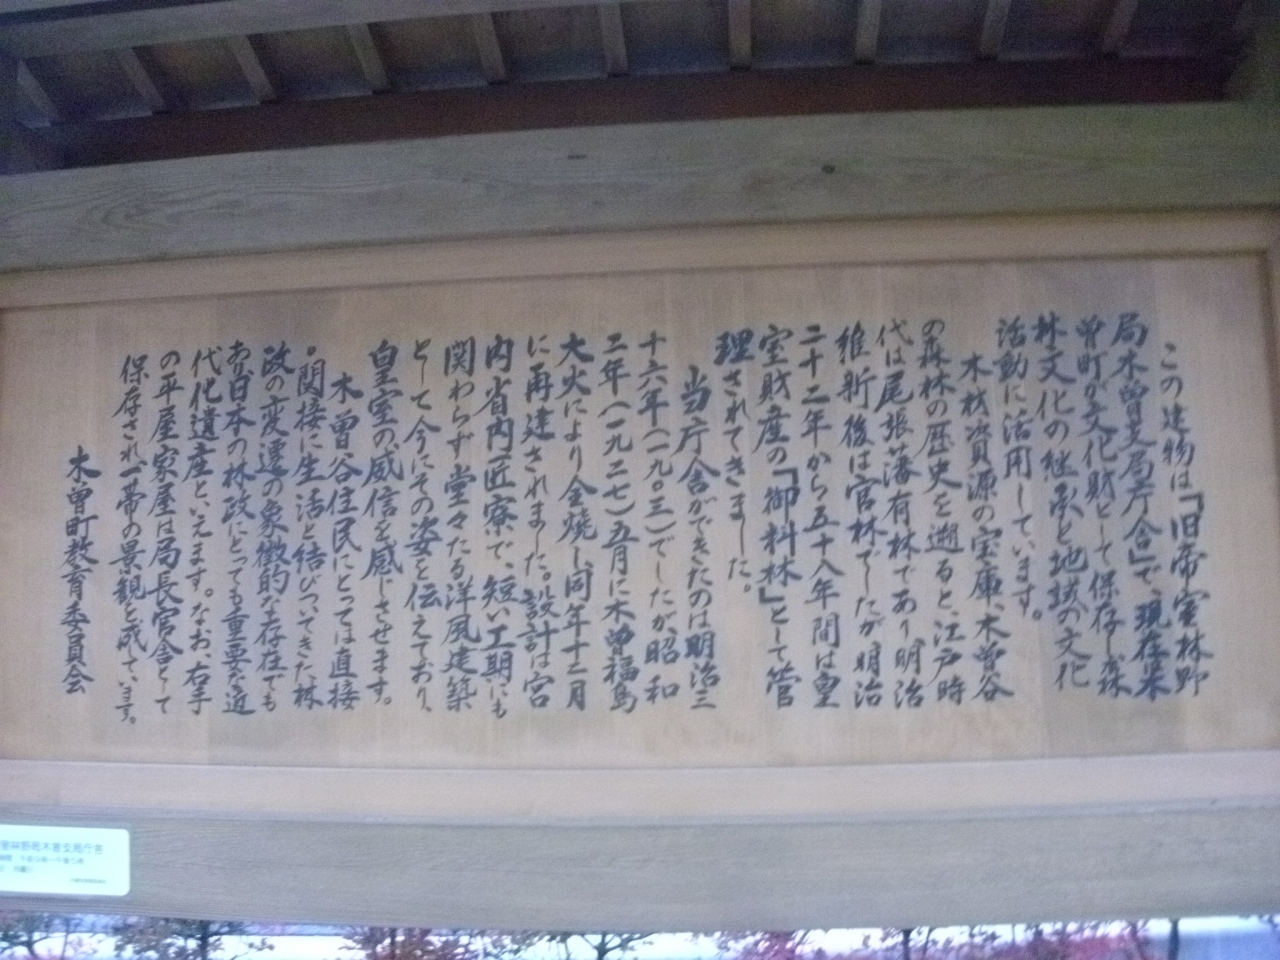 この建物は『旧帝室林野
局木曽支局庁舎』で、現在木
曽町が文化財として保存し森
林文化の継承と地域の文化
活動に活用しています。
木材資源の宝庫、木曽谷
の森林の歴史を遡ると、江戸時
代は尾張藩有林であり、明治
維新後は官林でしたが明治
二十二年から五十八年間は皇
室財産の『御料林』として管
理されてきました。
当庁舎ができたのは明治三
十六年(一九〇三)でしたが、昭和
二年(一九二七)五月に木曽福島
大火により全焼し、同年十二月
に再建されました。設計は宮
内省内匠寮で、短い工期にも
関わらず堂々たる洋風建築
として今にその姿を伝えており、
皇室の威信を感じさせます。
木曽谷住民にとっては直接
・間接に生活と結びついてきた林
政の変遷の象徴的な存在でも
あり日本の林政にとっても重要な近
代化遺産といえます。なお、右手
の平屋家屋は局長官舎として
保存され一帯の景観を成しています。
木曽町教育委員会
室林野局木曽支局庁舎